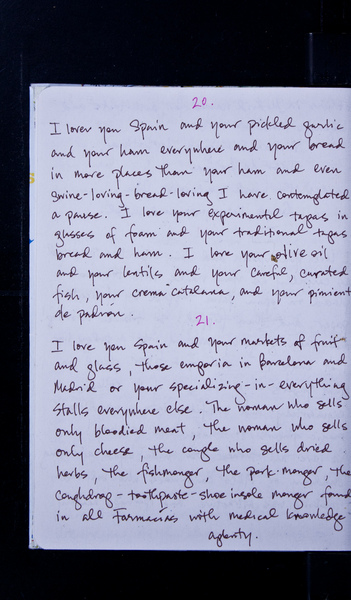 20.
I lover you Spain and your pickled garlic
and your ham everywhere and your bread
in more places than your ham and even
swine-loving-bread-loving I have contemplated
a pause. I love your experimental tapas in
glasses of foam and your traditional tapas
bread and ham. I love your olive oil
and your lentils and your careful, curated
fish, your crema catalana, and your pimient
de padron.
21.
I love you Spain and your markets of fruit
and glass, those emporia in Barcelona and
Madrid or your specializing-in-everything
stalls everywhere else. The woman who sells
only bloodied meat, the woman who sells
only cheese, the couple who sells dried
herbs, the fishmonger, the pork-monger, the
coughdrop-toothpaste-shoe insole monger found
in all Farmacias with medical knowledge
aplenty.